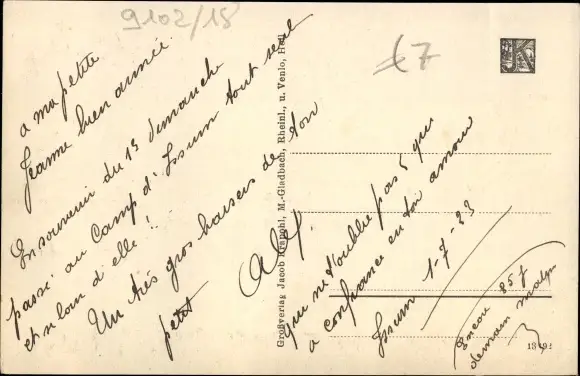 9102/18
a ma petite
Jeanne bien aimée
En souvenir du 1er dimanche
passé au Camp d'Issum tout seul
et si loin d'elle !
Un très gros baisers de ton
petit
Alf.
qui ne t'oublie pas, qui
a confiance en ton amour
Issum 1-7-23
Encore 85 J
demain matin
Großverlag Jacob Krapohl, M.-Gladbach, Rheinl., u. Venlo, Holl.